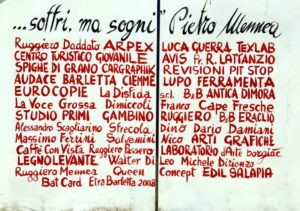 ...soffri, ma sogni" Pietro Mennea
Ruggiero Daddato ARPEX
CENTRO TURISTICO GIOVANILE
SPIGHE DI GRANO CARGRAPHIK
AUDACE BARLETTA CIEMME
EUROCOPIE La Disfida
La Voce Grossa Dimiccoli
STUDIO PRIMI GAMBINO
Alessandro Scagliarino Sfrecola
Massimo Ferrini Salvemini
Caffè Con Vista Ruggiero Passero
LEGNOLEVANTE. Walter Di
Ruggiero Mennea Queen
Bat Card Etra Barletta 2008
LUCA GUERRA TEXLAB
AVIS Fr. R. LATTANZIO
REVISIONI PIT STOP
LUPO FERRAMENTA
s.r.l. B2B ANTICA DIMORA
Franco Cape Fresche
RUGGIERO B&B ERACLIO
Dino Dario Damiani
Nico ARTI GRAFICHE
LABORATORIO d'Arte borgiac
Leo Michele Ditienzo
Concept EDIL SALAPIA